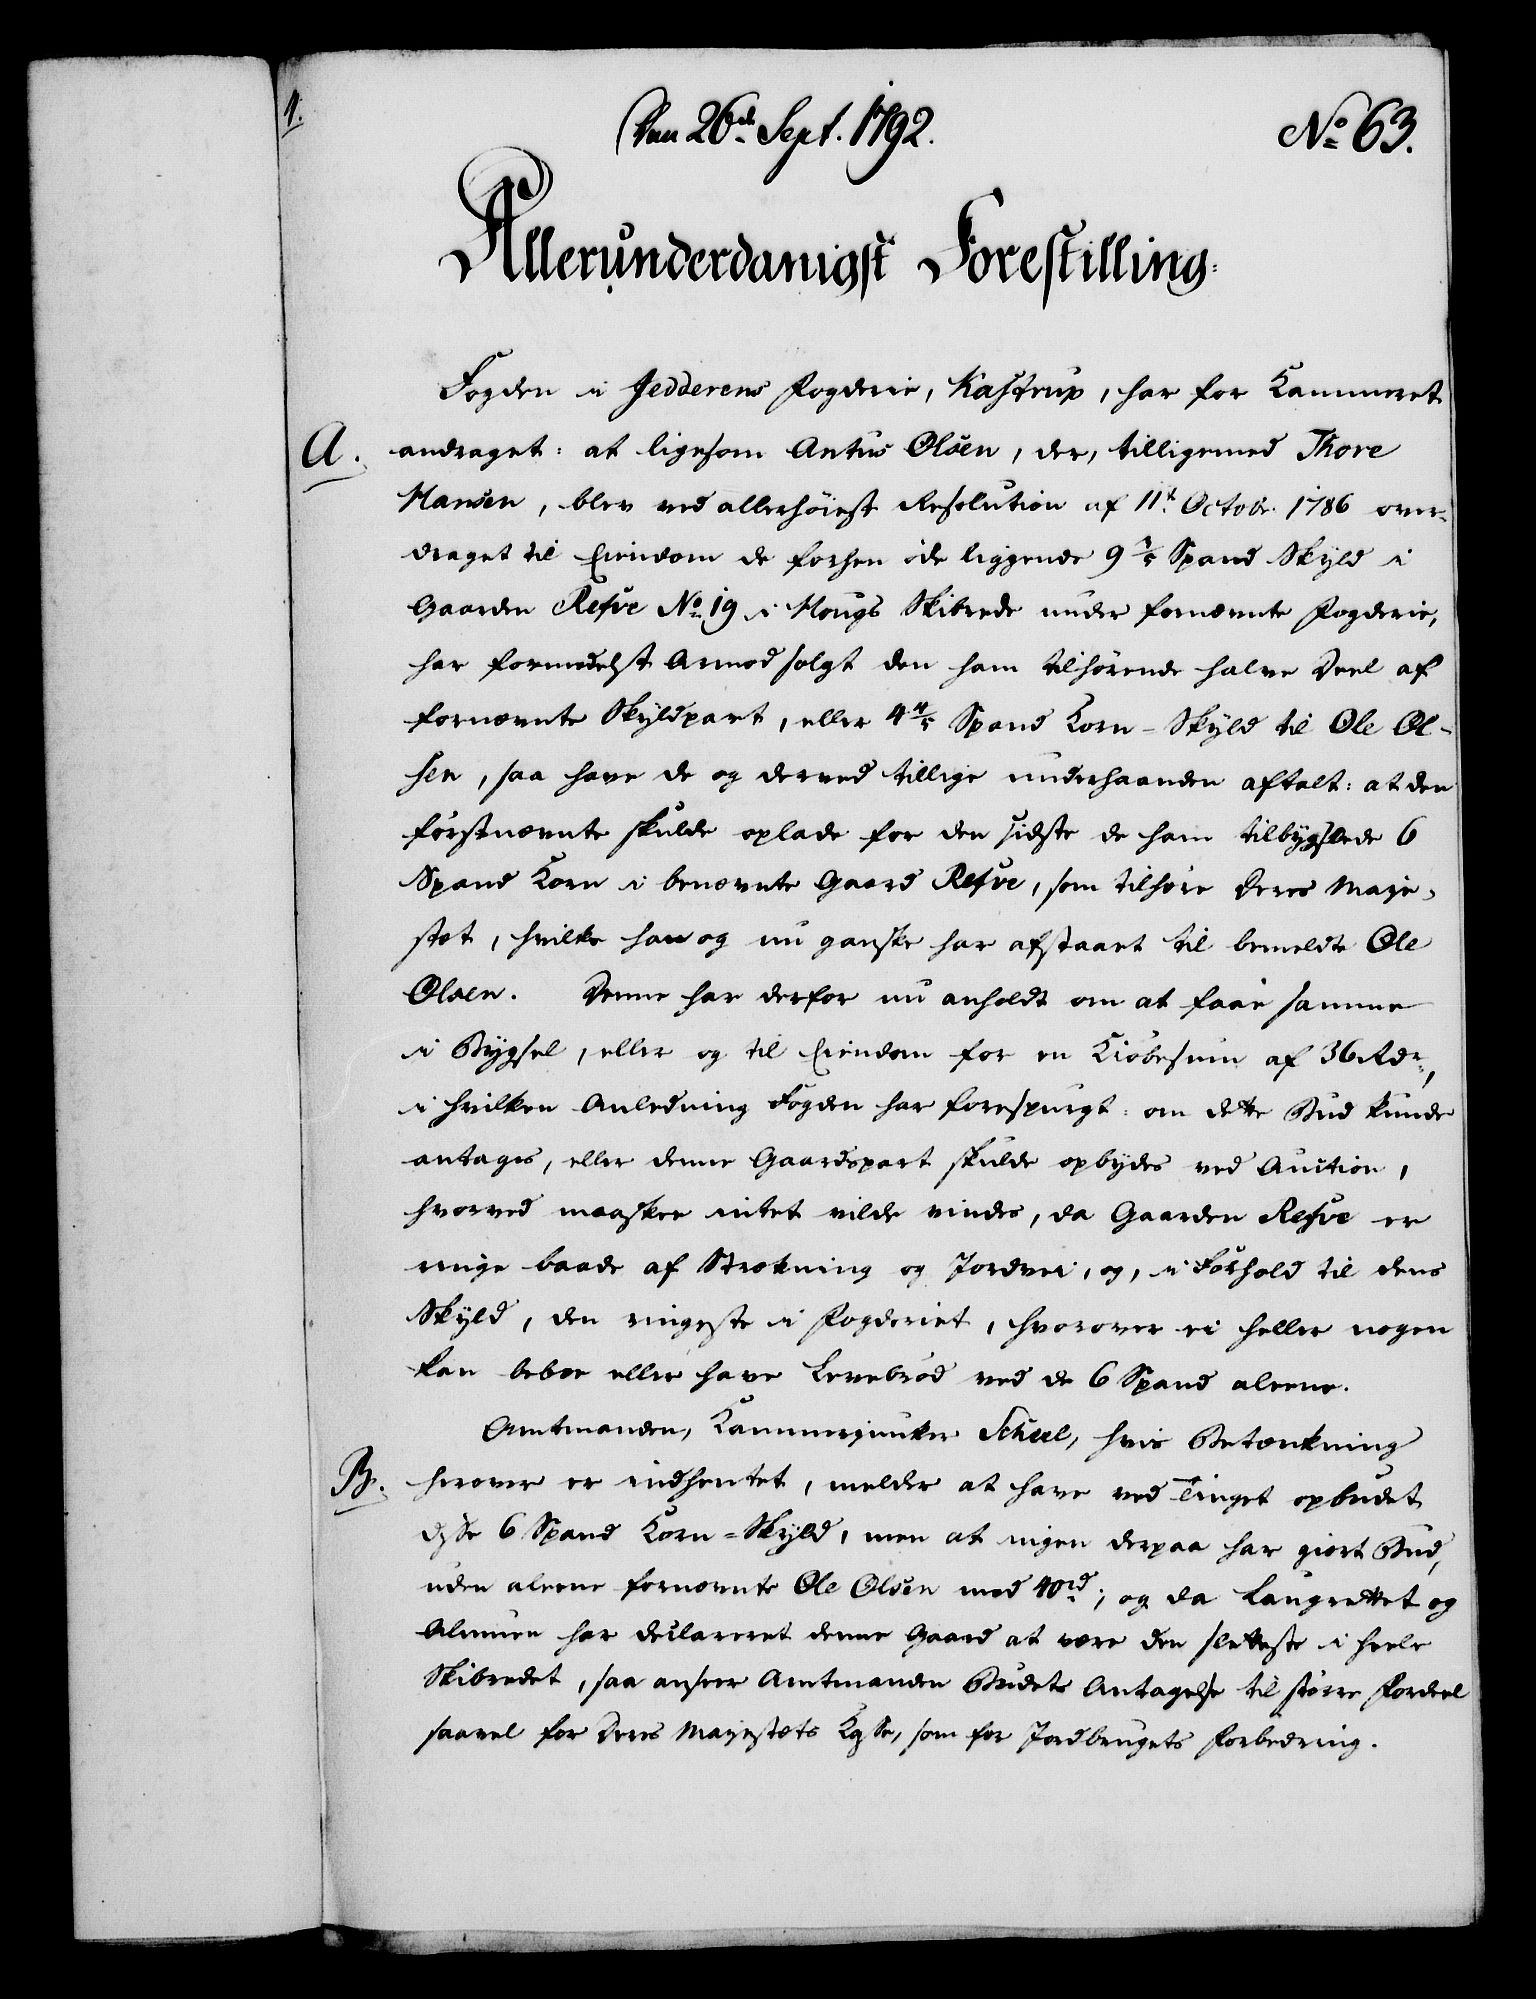 1.
Den 26de Sept. 1792.
No 63.
Allerunderdanigst Forestilling.
Fogden i Jedderens Fogderie, Kastrup, har for Kammeret
A.
andraget: at ligesom Antus Olsen, der, tilligemed Thore
Hansen, blev ved allerhøieste Resolution af 11te Octobr. 1786 over-
draget til Eiendom de forhen øde liggende 9 3/5 Spand Skyld i
Gaarden Refve No 19 i Hougs Skibrede under fornævnte Fogderie,
har formedelst Armod solgt den ham tilhørende halve Deel af
fornævnte Skyldpart, eller 4 4/5 Spand Korn-Skyld til Ole Ol-
sen, saa have de og derved tillige underhaanden aftalt: at den
førstnævnte skulde oplade for den sidste de ham tilbygslede 6
Spand Korn i benævnte Gaard Refve, som tilhøre Deres Maje-
stæt, hvilke han og nu ganske har afstaaet til bemeldte Ole
Olsen. Denne har derfor nu anholdt om at faae samme
i Bygsel, eller og til Eiendom for en Kiøbesum af 36 Rdr,
i hvilken Anledning Fogden har forespurgt: om dette Bud kunde
antages, eller denne Gaardspart skulde opbydes ved Auction,
hvorved maaskee intet vilde vindes, da Gaarden Refve er
ringe baade af Strækning og Jordvei, og, i Forhold til dens
Skyld, den ringeste i Fogderiet, hvorover ei heller nogen
kan beboe eller have Levebrød ved de 6 Spand aleene.
Amtmanden, Kammerjunker Scheel, hvis Betænkning
B.
herover er indhentet, melder at have ved Tinget opbudet
disse 6 Spand Korn-Skyld, men at ingen derpaa har giort Bud,
uden aleene fornævnte Ole Olsen med 40 rd; og da Laugrettet og
Almuen har declareret denne Gaard at være den sletteste i heele
Skibredet, saa anseer Amtmanden Budets Antagelse til større Fordeel
saavel for Deres Majestæts Kasse, som for Jordbrugets Forbedring.